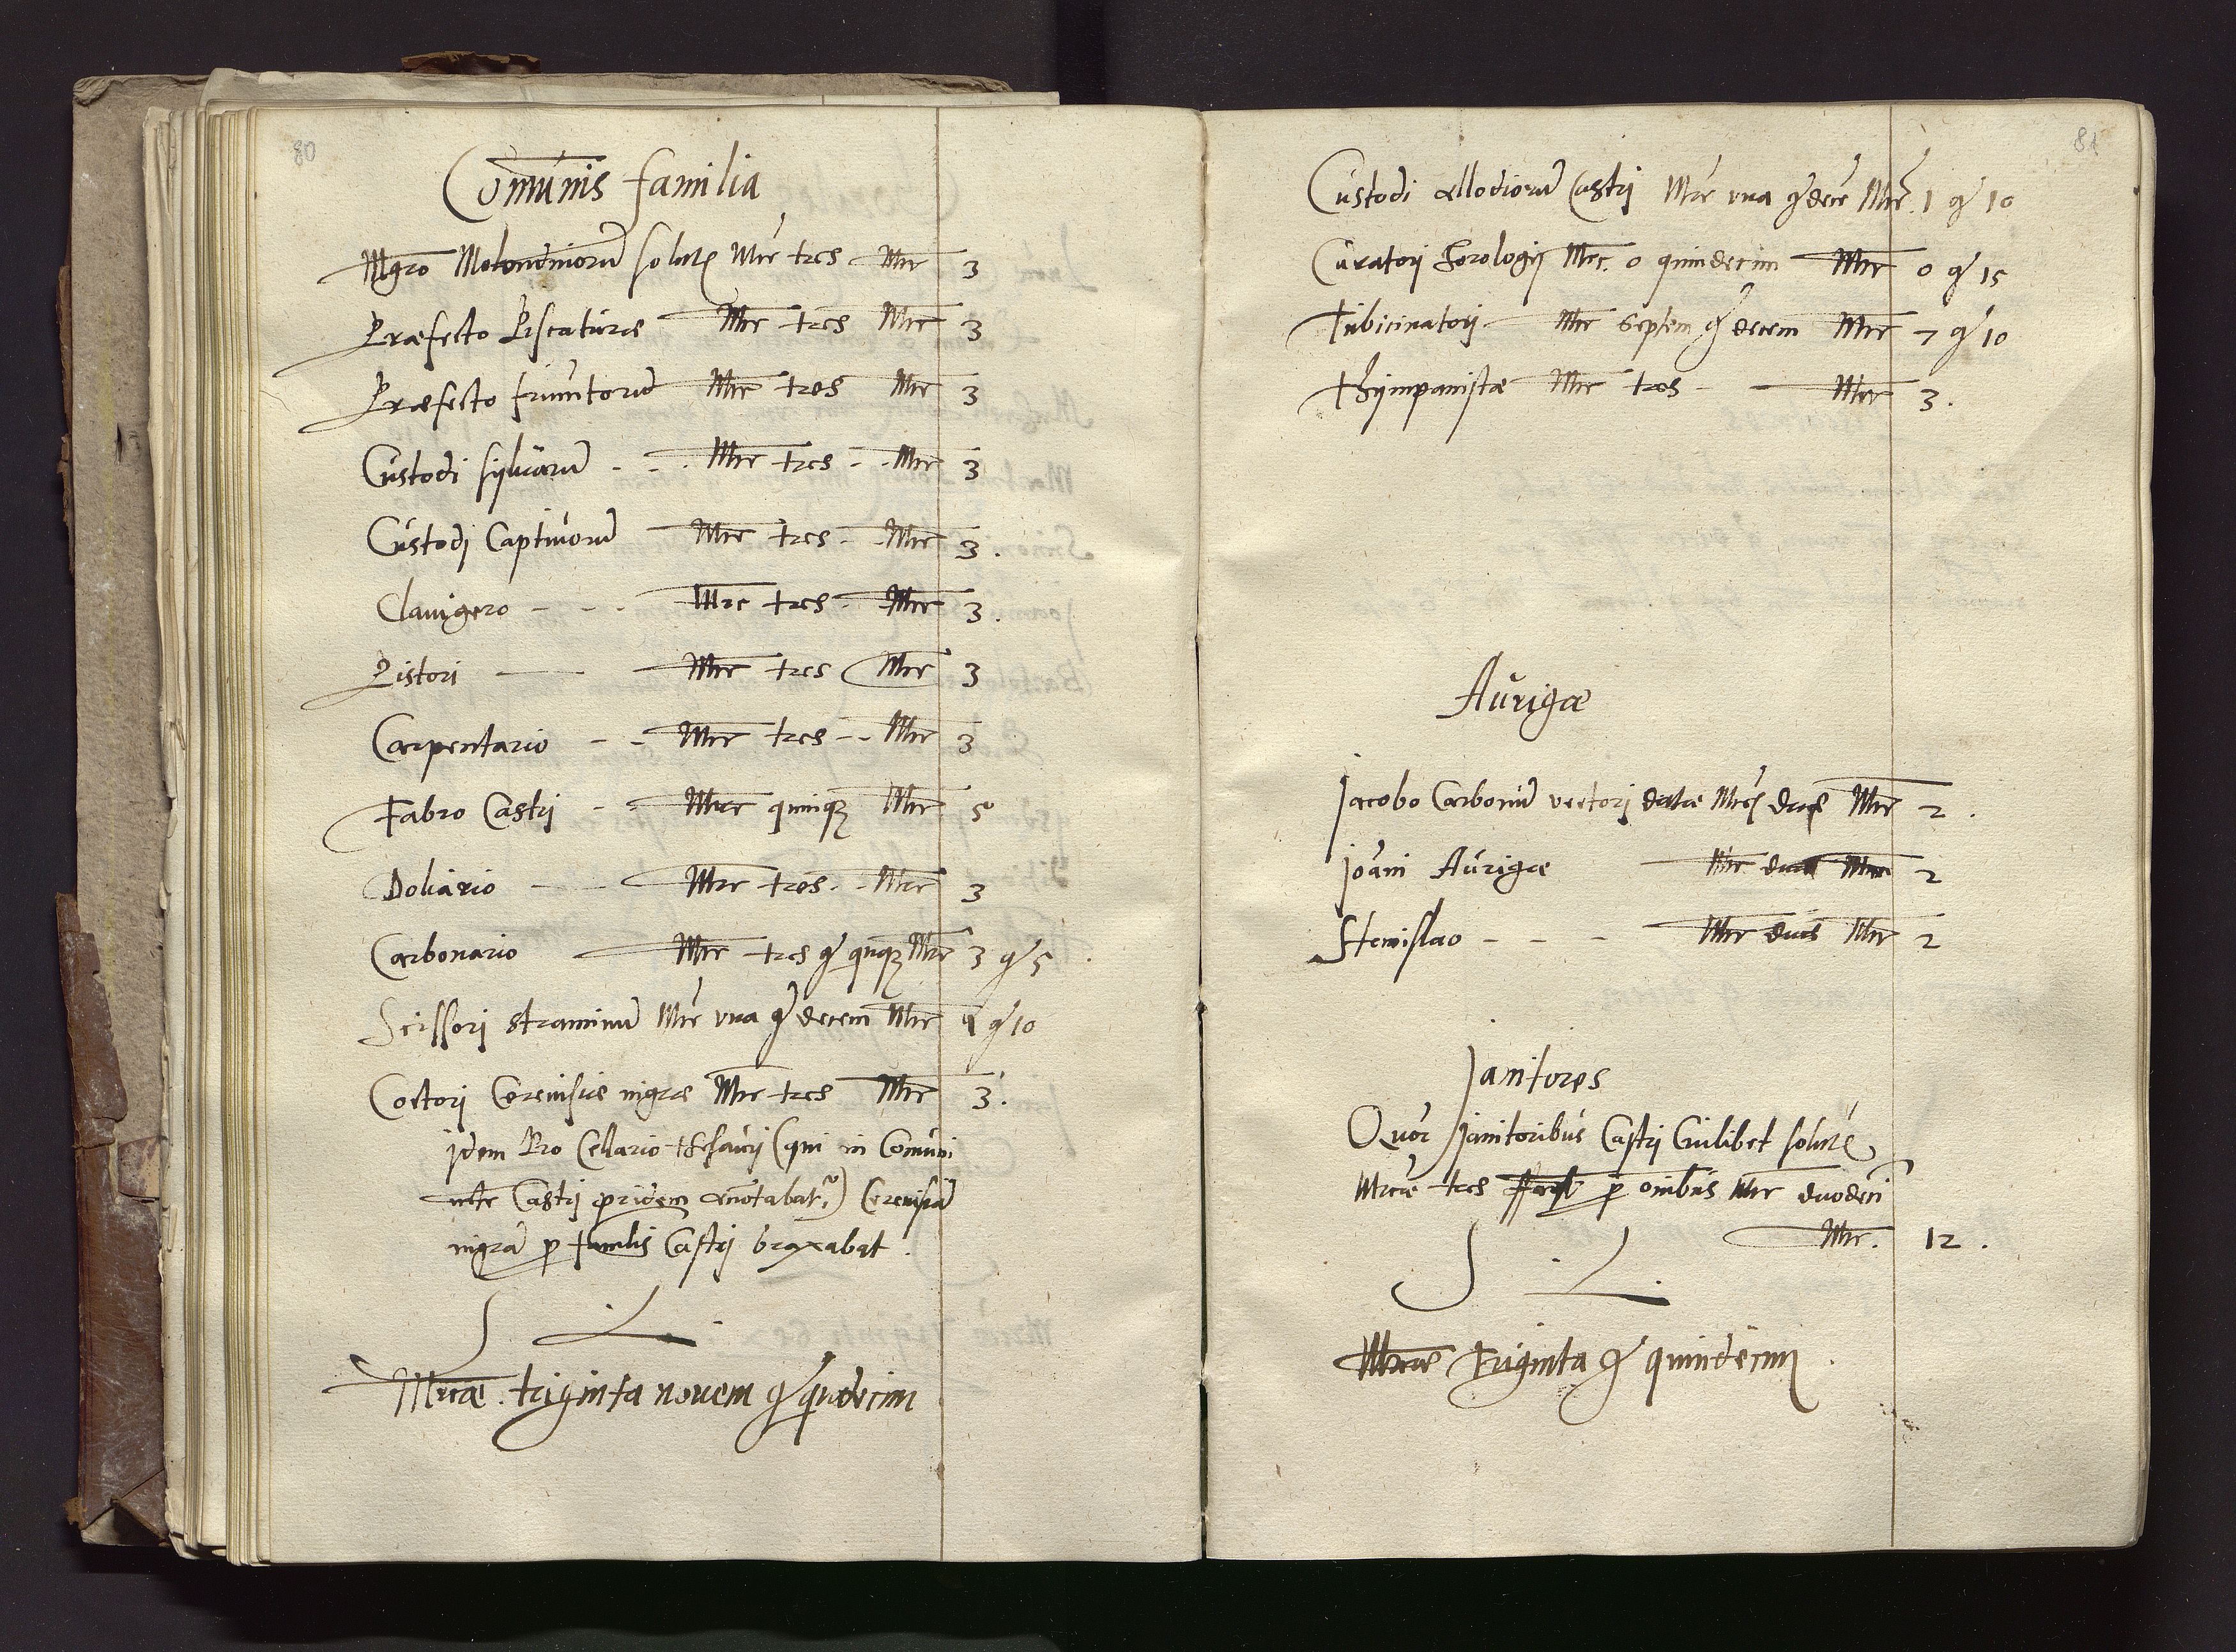 80
Comunis familia
Mgro Molendinorū solut Mrc tres Mrc 3
Præfecto Piscaturæ Mrc tres Mrc 3
Præfecto frumtorū Mrc tres Mrc 3
Custodi sylvarū - - . Mrc tres - - Mrc 3
Custodj Captivorū Mrc tres - - Mrc 3.
Clavigero - - - Mrc tres - Mrc 3.
Pistori — Mrc tres Mrc 3
Carpentario - - Mrc tres - - Mrc 3
Fabro Castrj - Mrc quinqȝ Mrc 5
Doliario — Mrc tres - - Mrc 3
Carbonario Mrc tres g qnqȝ Mrc 3 g 5
Scissori straminū Mrc vna g decem Mrc 1 g 10
Coctori Cerevisiæ nigræ Mrc tres Mrc 3.
jdem Pro Cellario thesaurj (qui in Comuni
Castrj pridem annotabatr) Cerevisiā
nigrā p familis Castrj braxabat.
S L.
Mrcæ. triginta novem g quidecim
81
Custodi allodiorū Castrj Mrc vna g dece Mrc. 1 g 10
Curatorj horologij Mrc. 0 quindecim Mrc 0 g 15
Tubicinatorj Mrc septem g decem Mrc 7 g 10
Thÿmpanistæ Mrc tres - — Mrc 3.
Aurigæ
Jacobo Carbonū vectorj datæ Mrc duæ Mrc 2.
Joāni Aurigæ Mrc duæ Mrc 2
Stanislao - - - Mrc duæ Mrc 2
Janitores
Quor Janitoribus Castrj Cuilibet solutæ
Mrcæ tres facit p omibus Mrc duodeci
Mrc. 12.
S L.
Mrcæ triginta g quindecim.